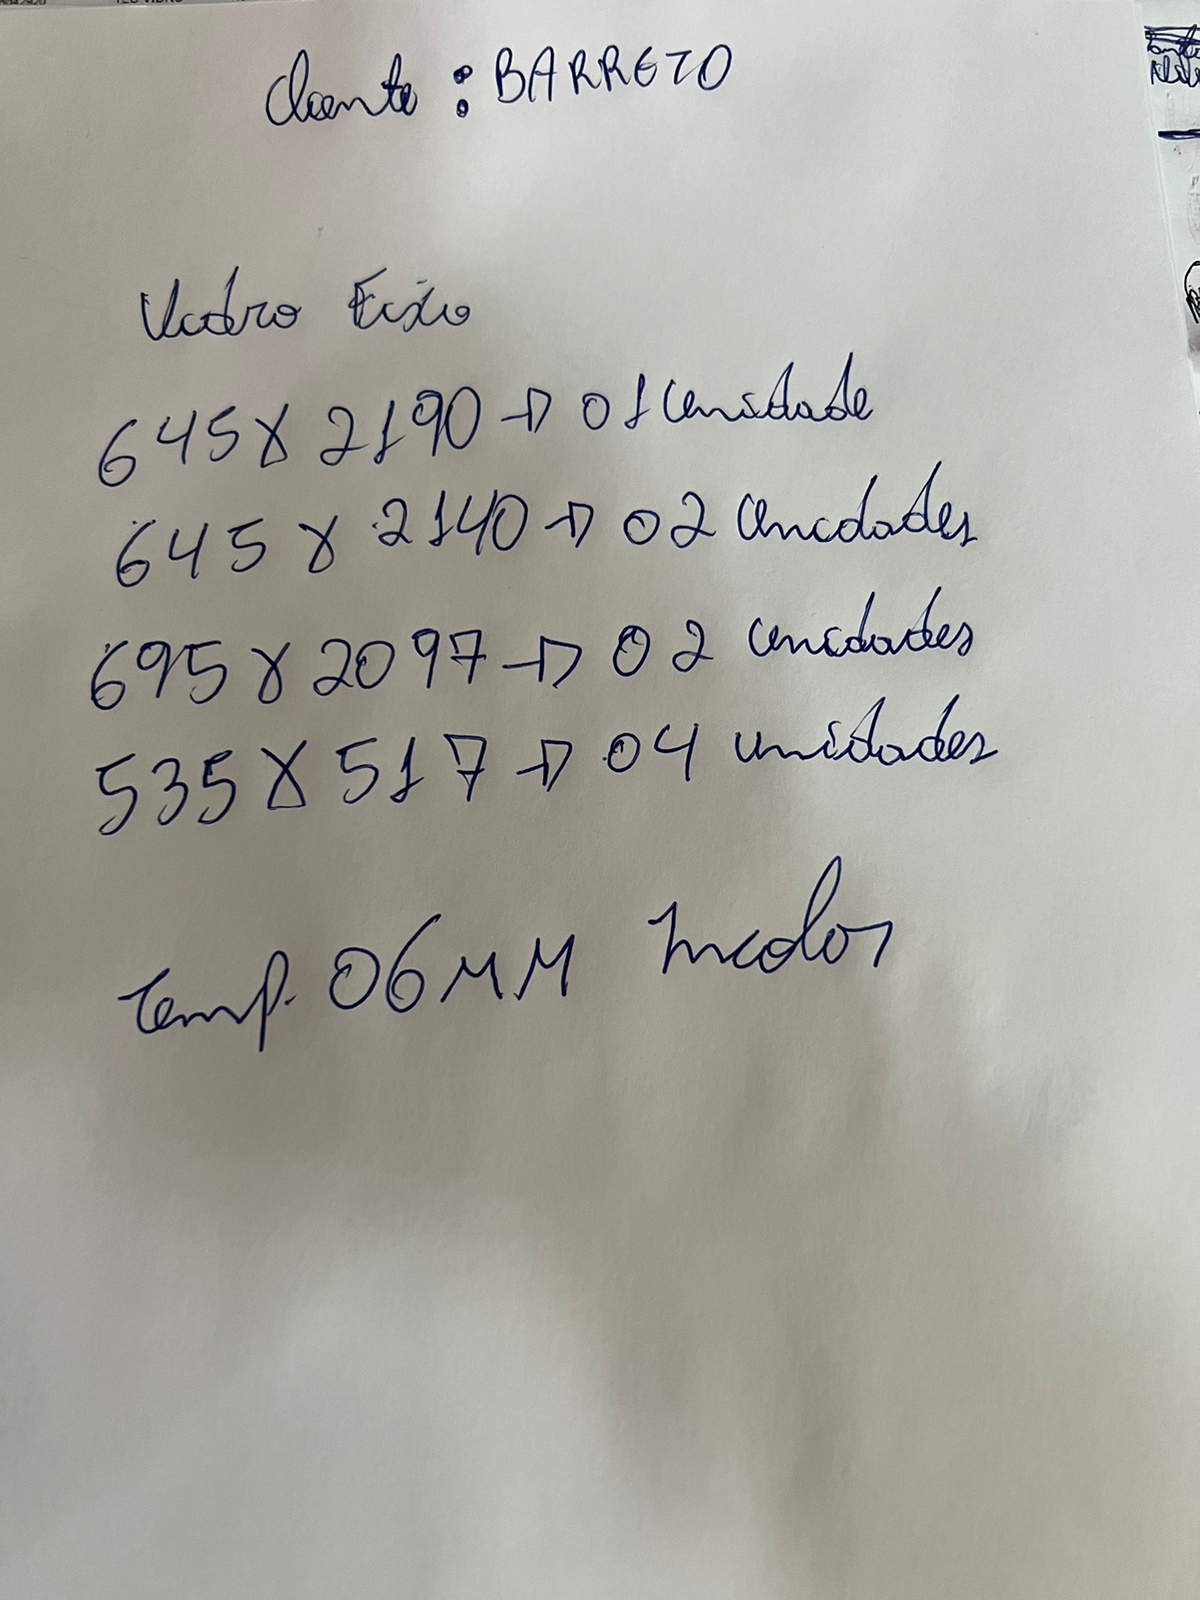 Cliente : BARRETO
Vidro Fixo
645 X 2190 → 01 unidade
645 X 2140 → 02 unidades
695 X 2097 → 02 unidades
535 X 517 → 04 unidades
Temp. 06MM Incolor